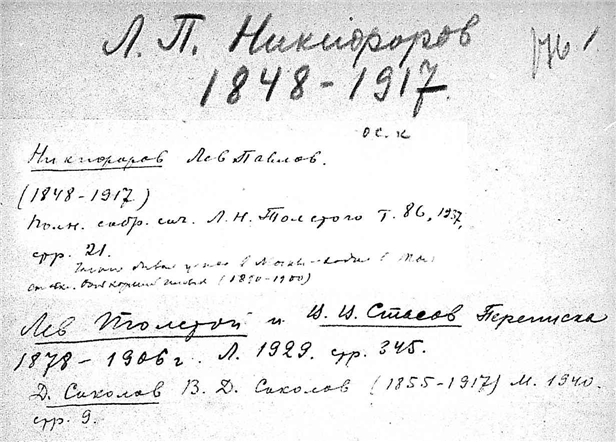 Л. П. Никифоров
1848-1917.
ос. к
Никифоров Лев Павлов.
(1848-1917)
Полн. собр. соч. Л. Н. Толстого т. 86, 1937,
стр. 21.
(1890-1900)
Лев Толстой и В. В. Стасов Переписка
1878-1906 г. Л. 1929. стр. 345.
Д. Соколов В. Д. Соколов (1855-1917) М. 1940.
стр. 9.